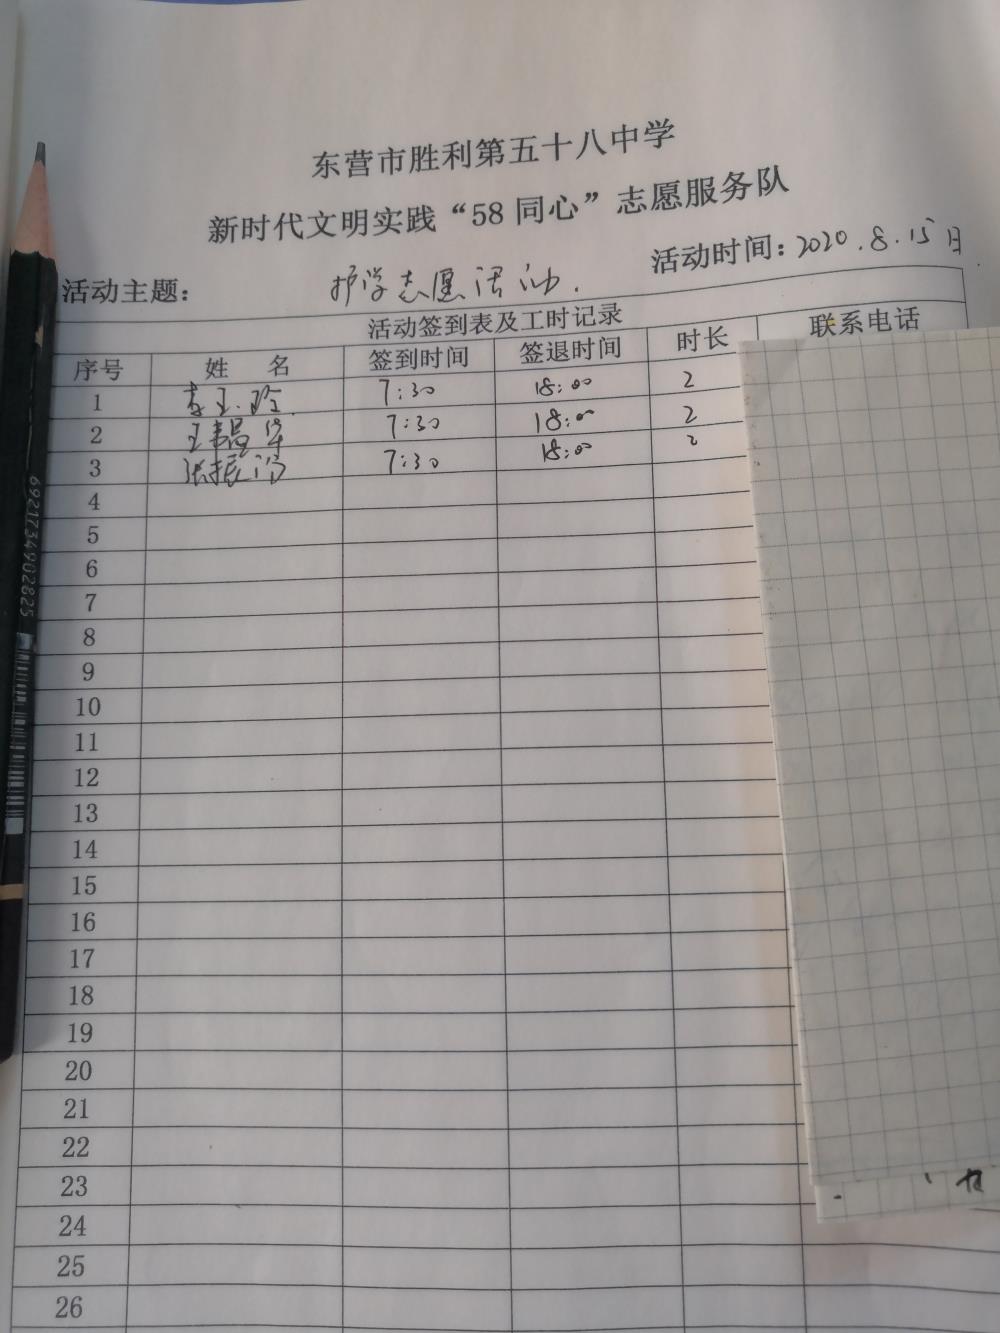 东营市胜利第五十八中学
新时代文明实践“58同心”志愿服务队
活动主题: 护学志愿活动. 活动时间: 2020.8.15日
活动签到表及工时记录
序号 姓 名 签到时间 签退时间 时长 联系电话
1 7:30 18:00 2
2 王 7:30 18:00 2
3 张振 7:30 18:00 2
4
5
6
7
8
9
10
11
12
13
14
15
16
17
18
19
20
21
22
23
24
25
26
6921734902825